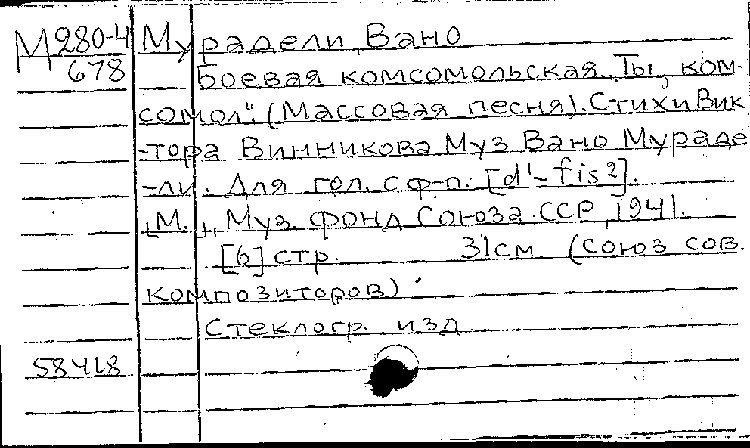 М280-4 Мурадели, Вано
678 Боевая комсомольская „Ты, ком-
сомол“. (Массовая песня). Стихи Вик
-тора Винникова Муз Вано Мураде
-ли. Для гол. с ф-п. [d¹-fis²].
[М.], Муз. фонд Союза ССР, 1941.
[6] стр. 31см (союз сов.
композиторов)
Стеклогр. изд
58418